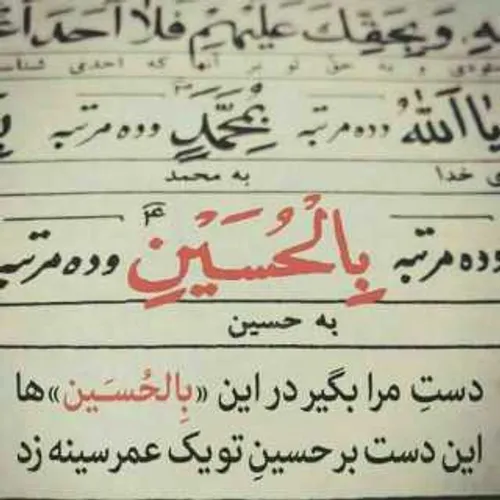 وَبِحَقِّكَ عَلَيْهِمْ فَلاٰ اَحَدَ
و به حق تو بر آنها که احدی
یٰا اَللّٰهُ وده مرتبه بِمُحَمَّدٍ وده مرتبه
خدا به محمد
وده مرتبه بِالْحُسَیْنِ وده مرتبه
به حسین
دستِ مرا بگیر در این «بِالحُسَین» ها
این دست بر حسینِ تو یک عمر سینه زد